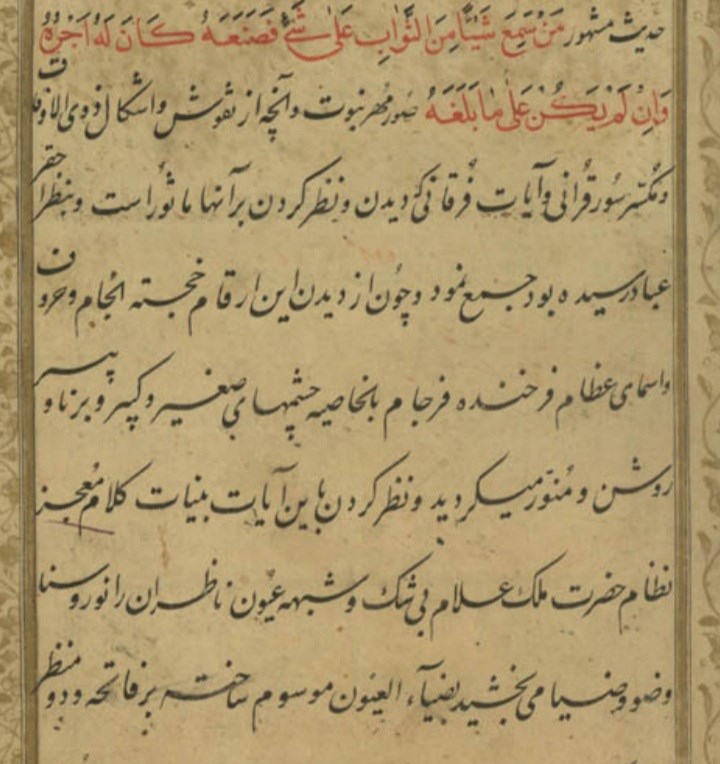 حدیث مشهور مَنْ سَمِعَ شَیْئًا مِنَ الثَّوابِ عَلیٰ شَیْءٍ فَصَنَعَهُ کَانَ لَهُ اَجْرُهُ
وَاِنْ لَمْ یَکُنْ عَلیٰ مَا بَلَغَهُ صُوَر مُهر نبوت و آنچه از نقوش و اشکال ذوی الاوفاق
و مکسر سُوَر قُرآنی و آیات فُرقانی که دیدن و نظر کردن بر آنها ماثور است و بنظر احقر
عباد رسیده بود جمع نمود و چون از دیدن این ارقام خجسته انجام و حروف
و اسمای عظام فرخنده فرجام بالخاصیه چشمهای صغیر و کبیر و برنا و پیر
روشن و مُنوّر میکردید و نظر کردن باین آیات بینات کلام مُعجز
نظام حضرت ملک علام بی شک و شبهه عیون ناظران را نور و سنا
و ضوء و ضیا می بخشید بضیآء العیون موسوم ساخته بر فاتحه و دو منظر